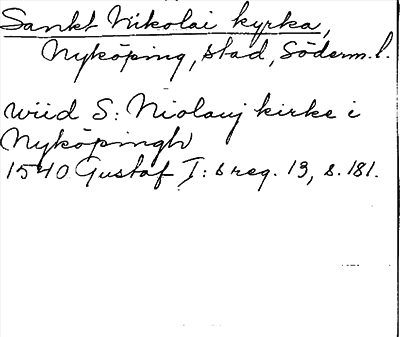 Sankt Nikolai kyrka,
Nyköping, stad, Söderm.l.
wiid S: Niolauj kirke i
Nyköpingh
1540 Gustaf I:s reg. 13, s. 181.